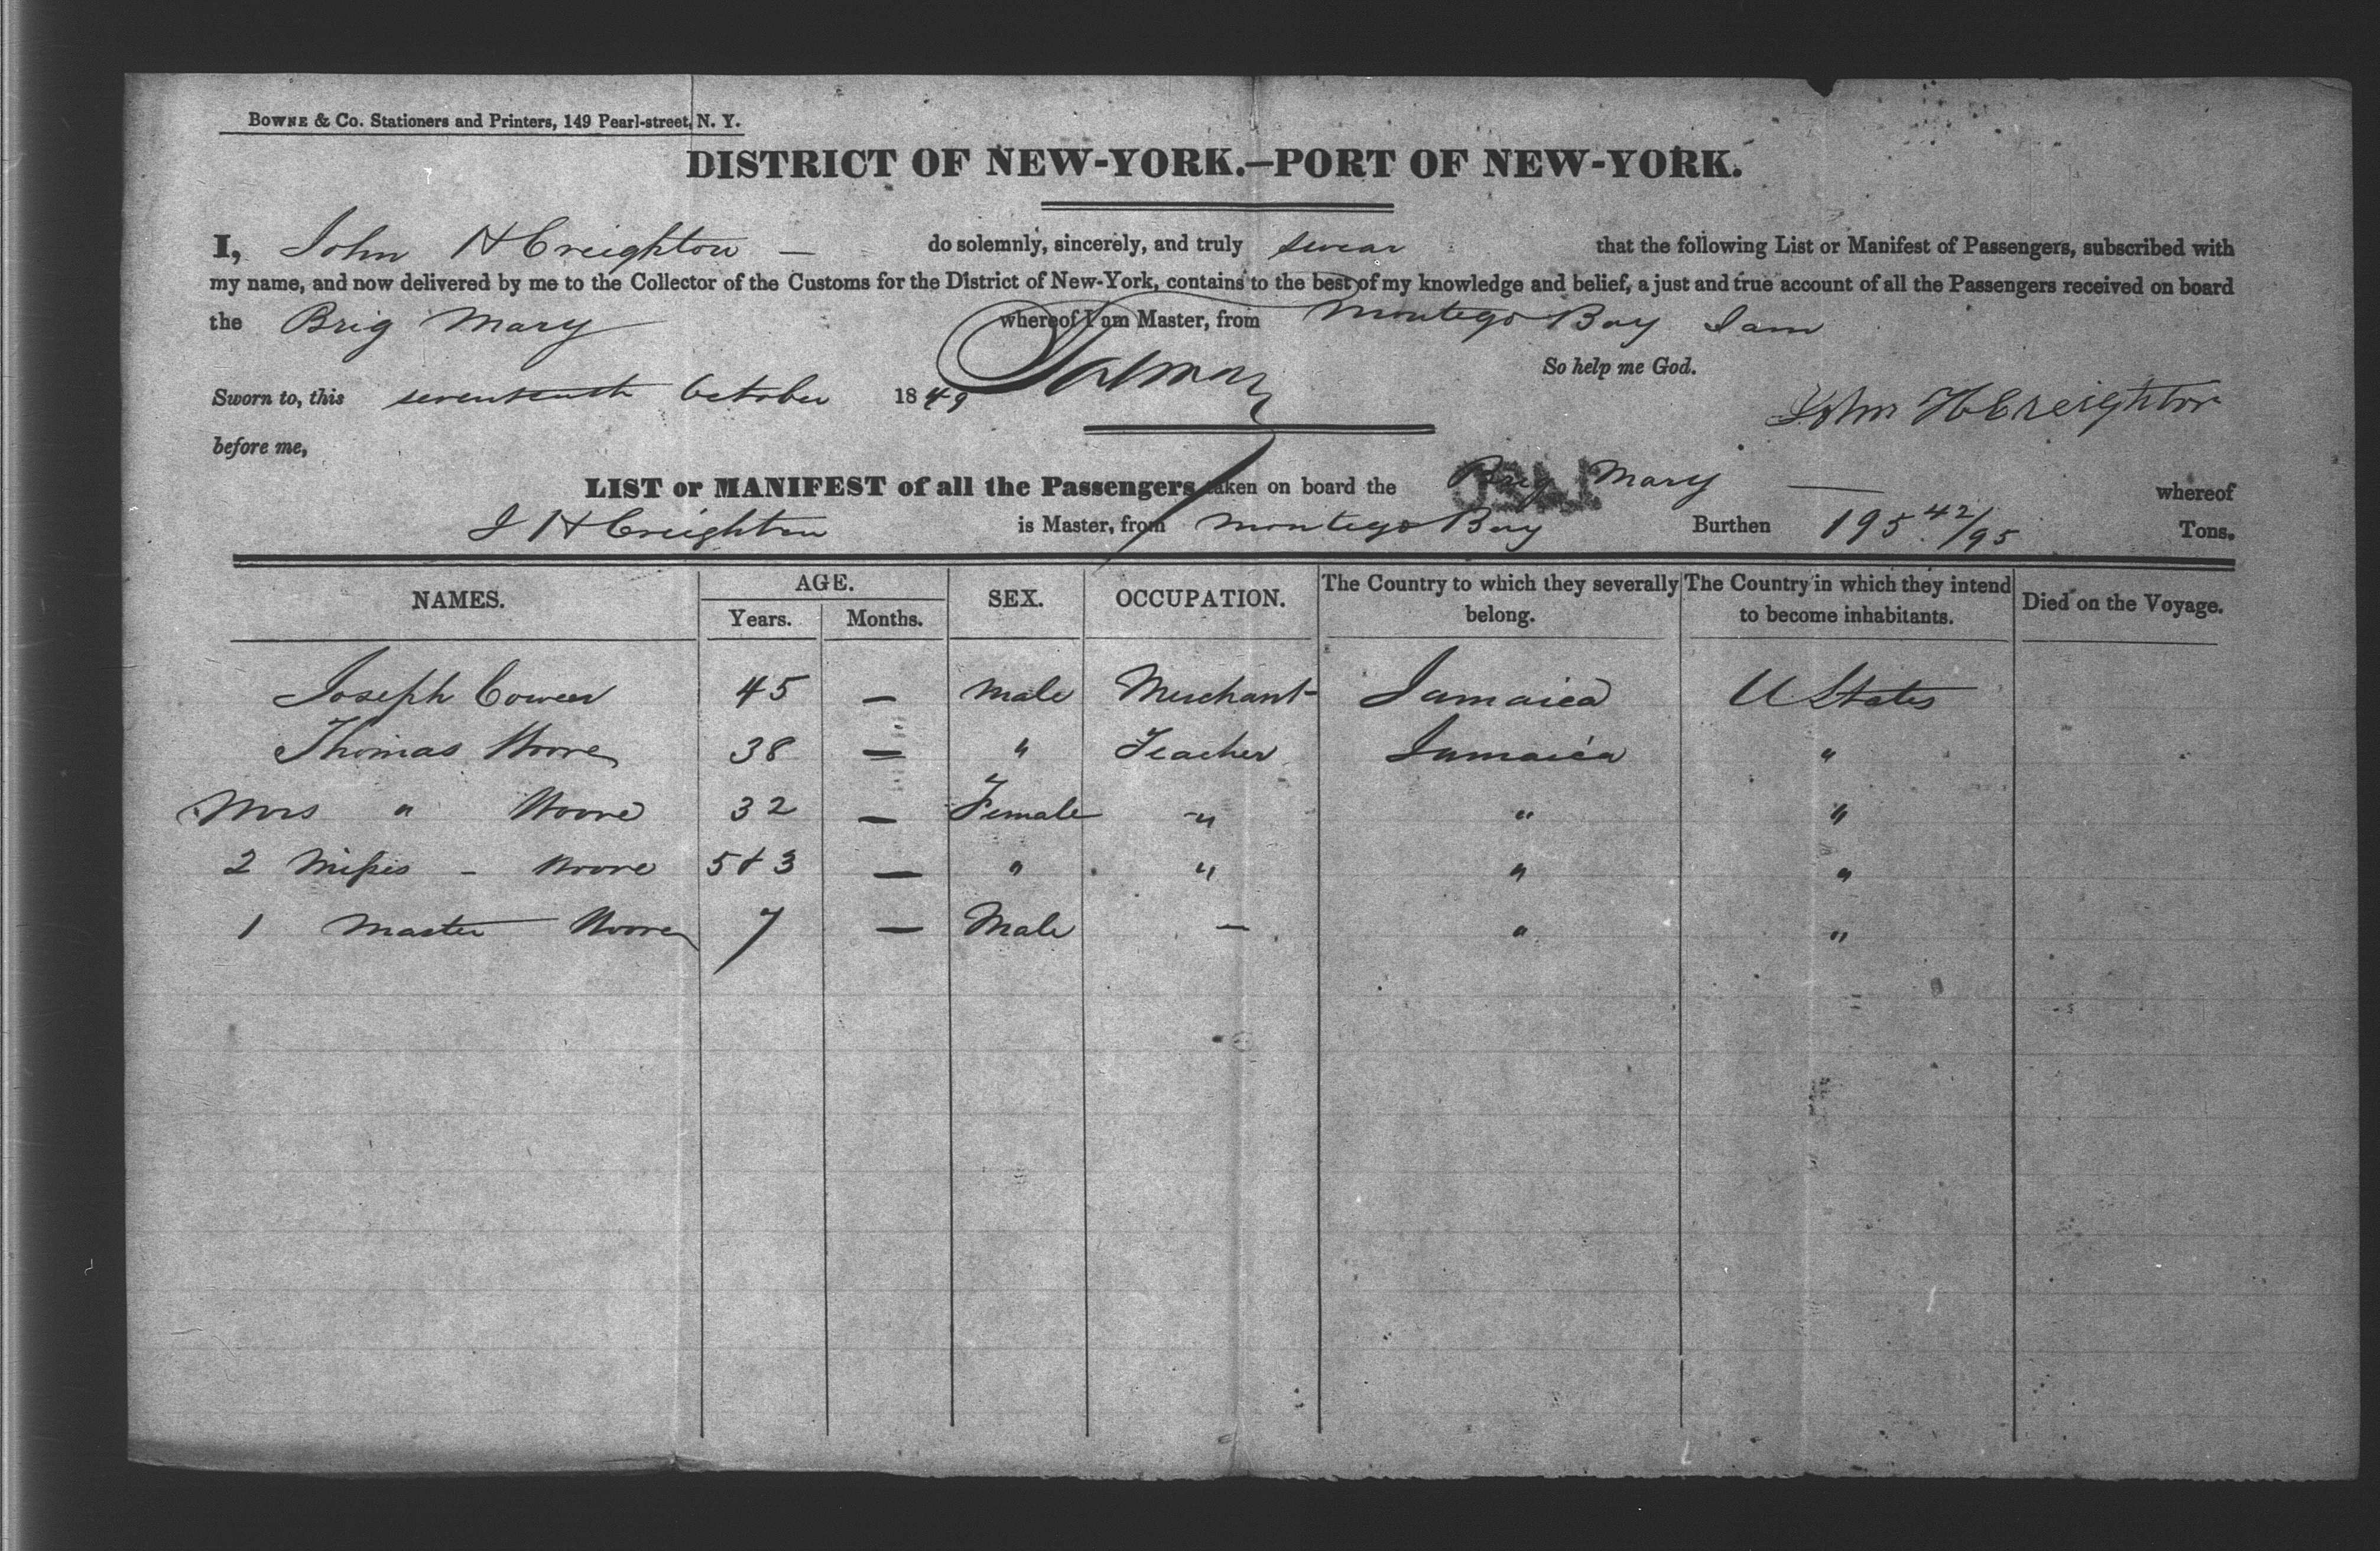 BOWNE & Co. Stationers and Printers, 149 Pearl-street, N. Y.
DISTRICT OF NEW-YORK.—PORT OF NEW-YORK.
I, John H Creighton — do solemnly, sincerely, and truly swear that the following List or Manifest of Passengers, subscribed with
my name, and now delivered by me to the Collector of the Customs for the District of New-York, contains to the best of my knowledge and belief, a just and true account of all the Passengers received on board
the Brig Mary whereof I am Master, from Montego Bay Jam
So help me God.
Sworn to, this seventeenth October 1849 John H Creighton
before me,
LIST or MANIFEST of all the Passengers taken on board the Brig Mary — whereof
J H Creighton is Master, from Montego Bay Burthen 195 42/95 Tons.
NAMES. AGE. Years. Months. SEX. OCCUPATION. The Country to which they severally belong. The Country in which they intend to become inhabitants. Died on the Voyage.
Joseph 45 — Male Merchant Jamaica U States
Thomas Moore 38 — " Teacher Jamaica "
Mrs " Moore 32 — Female " " "
2 Misses - Moore 5 & 3 — " " " "
1 Master Moore 7 — Male — " "